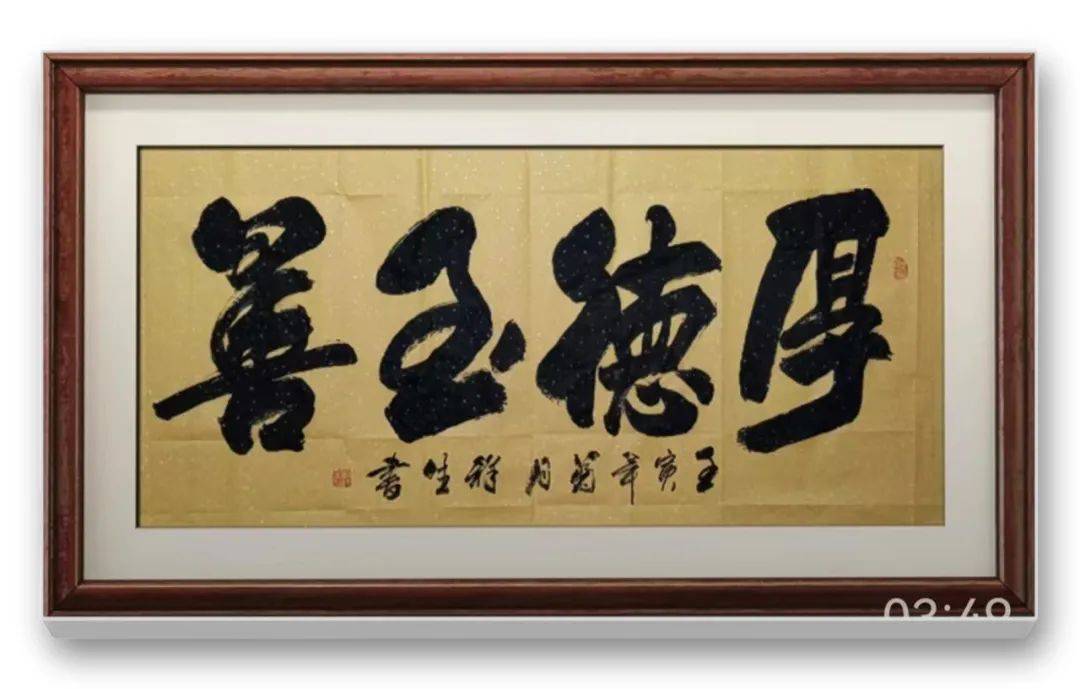 厚德至善
壬寅年菊月 祥生书
03:49